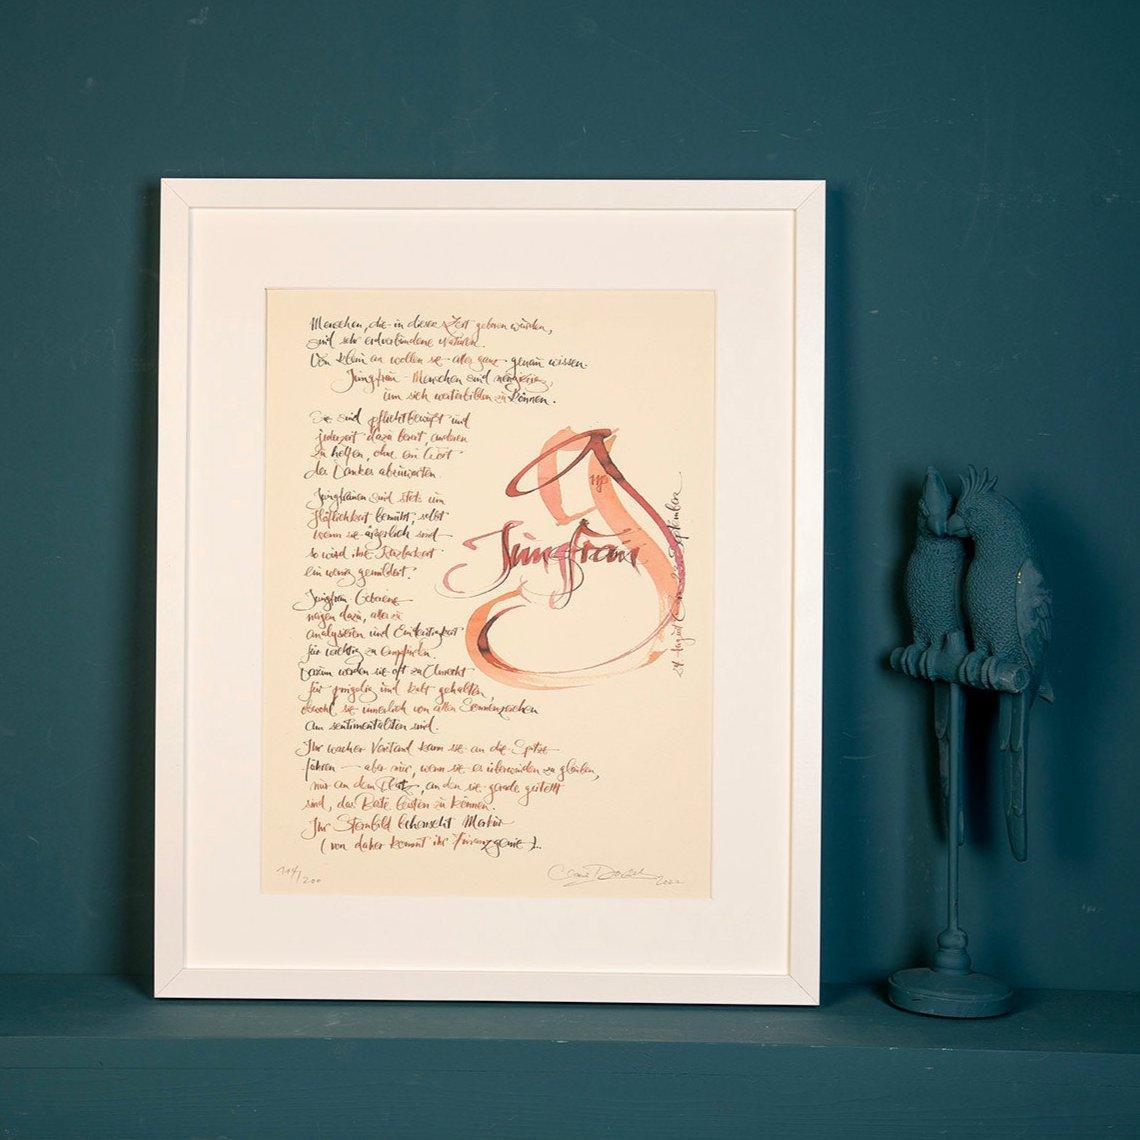 Menschen, die in dieser Zeit geboren wurden,
sind sehr erdverbundene Naturen.
Von klein an wollen sie alles ganz genau wissen.
Jungfrau Menschen sind neugierig,
um sich weiterbilden zu können.
Sie sind pflichtbewußt und
jederzeit dazu bereit, anderen
zu helfen, ohne ein Wort
des Dankes abzuwarten.
Jungfrauen sind stets um
Höflichkeit bemüht, selbst
wenn sie ärgerlich sind
so wird ihre Reizbarkeit
ein wenig gemildert.
Jungfrau Geborene
neigen dazu, alles zu
analysieren und Eintönigkeit
für wichtig zu empfinden
Darum werden sie oft zu Unrecht
für pingelig und kalt gehalten,
obwohl sie innerlich von allen Sternzeichen
am sentimentalsten sind.
Ihr wacher Verstand kann sie an die Spitze
führen – aber nur, wenn sie es überwinden zu glauben,
nur an dem Platz, an den sie gerade gestellt
sind, das Beste leisten zu können.
Ihr Sternbild beherrscht Merkur
(von daher kommt ihr Finanzgenie)..
Jungfrau
♍
24. August September
144/200
2022